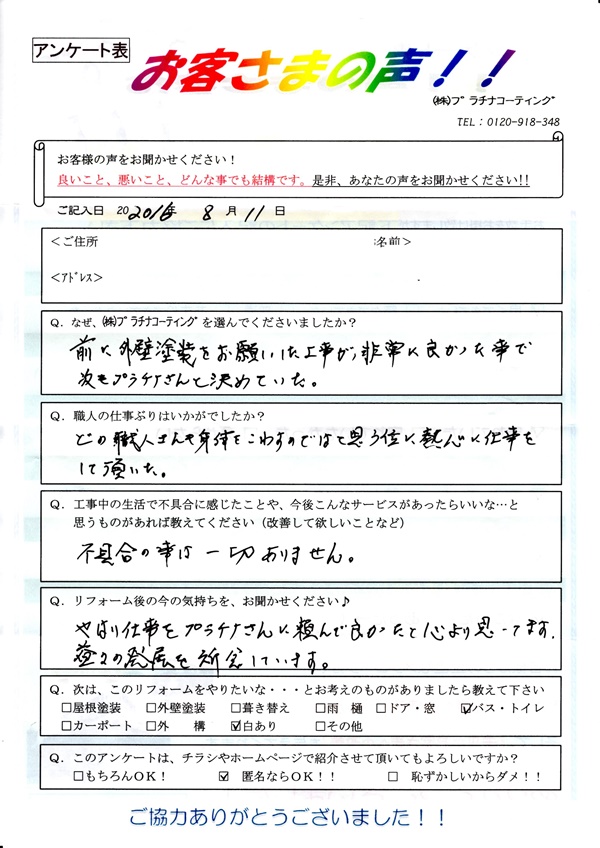 アンケート表
お客さまの声！！
㈱プラチナコーティング
TEL：0120-918-348
お客様の声をお聞かせください！
良いこと、悪いこと、どんな事でも結構です。是非、あなたの声をお聞かせください!!
ご記入日 20 2016年 8 月 11 日
＜ご住所 名前＞
＜アドレス＞
Q．なぜ、㈱プラチナコーティングを選んでくださいましたか？
前に外壁塗装をお願いした工事が、非常に良かった事で
次もプラチナさんと決めていた。
Q．職人の仕事ぶりはいかがでしたか？
どの職人さんも身体をこわすのではと思う位に熱心に仕事を
して頂いた。
Q．工事中の生活で不具合に感じたことや、今後こんなサービスがあったらいいな…と
思うものがあれば教えてください（改善して欲しいことなど）
不具合の事は一切ありません。
Q．リフォーム後の今の気持ちを、お聞かせください♪
やはり仕事をプラチナさんに頼んで良かったと心より思ってます。
益々の発展を祈念しています。
Q．次は、このリフォームをやりたいな・・・とお考えのものがありましたら教えて下さい
□屋根塗装 □外壁塗装 □葺き替え □雨 樋 □ドア・窓 ☑バス・トイレ
□カーポート □外 構 ☑白あり □その他
Q．このアンケートは、チラシやホームページで紹介させて頂いてもよろしいですか？
□もちろんOK！ ☑ 匿名ならOK！！ □ 恥ずかしいからダメ！！
ご協力ありがとうございました！！